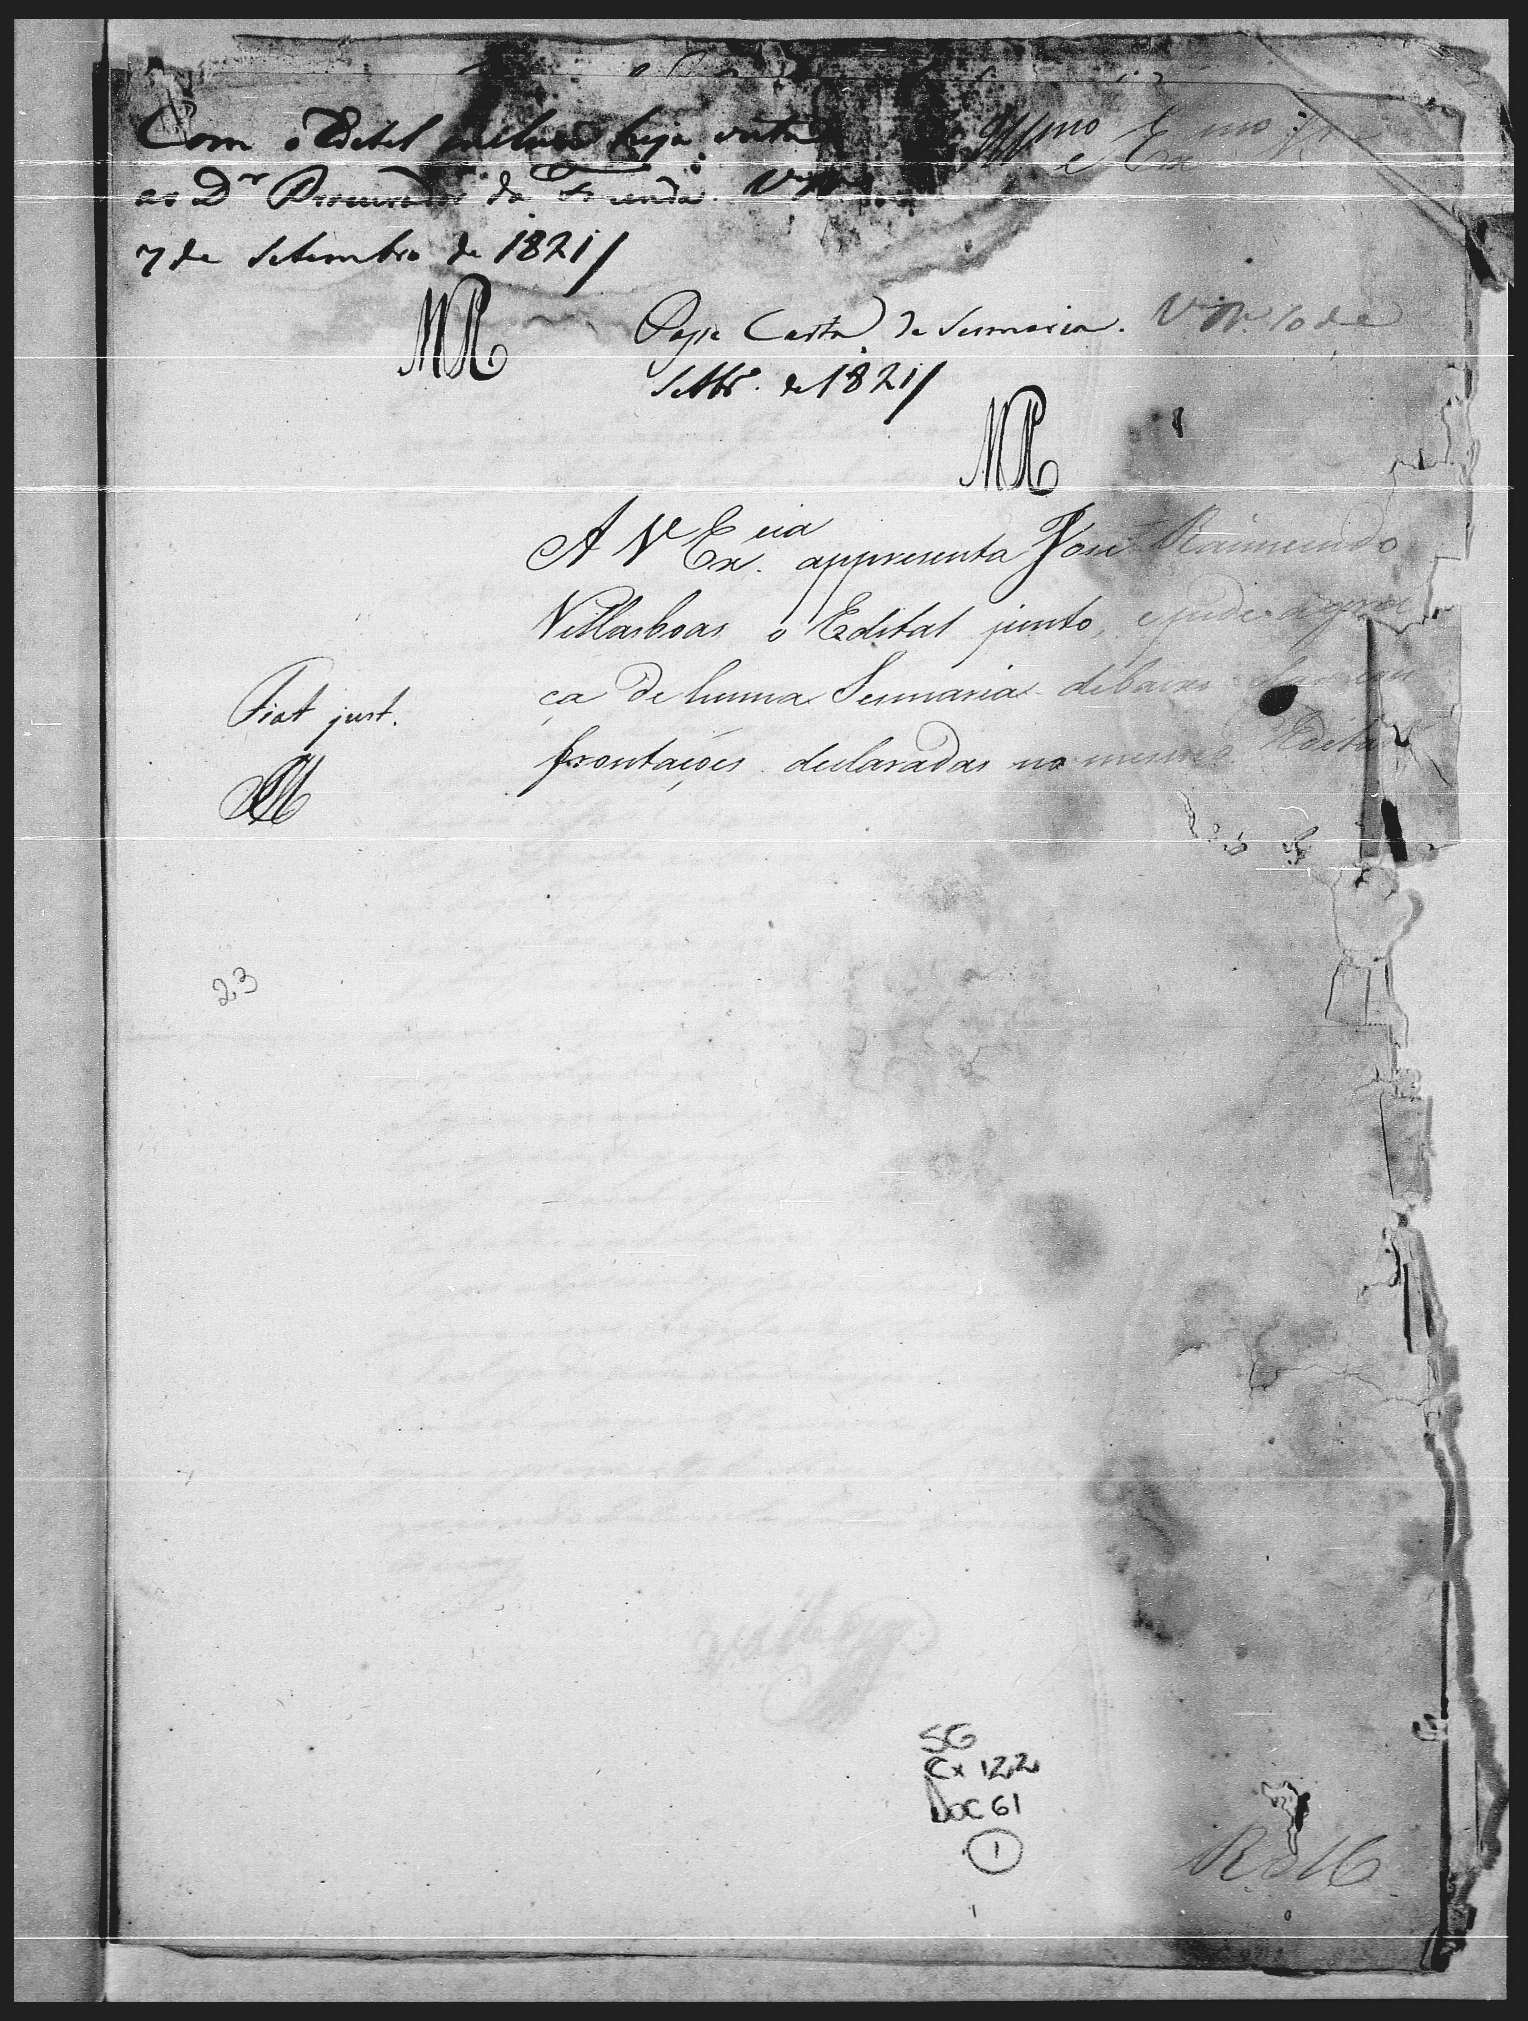 Com o Edital incluso haja vista
ao Dr Procurador da Fazenda. Va Ra
7 de Setembro de 1821/
MR
Illmo e Exmo
Passe Carta de Sesmaria. Va Ra 10 de
Settbro. de 1821/
MR
A V Excia. appresenta José Raimundo
Villasboas o Edital junto, e pede a gra
ça de huma Sesmaria debaixo das con
frontações declaradas no mesmo Edital
Fiat just.
23
SG
Cx 122
Doc 61
1
R. M